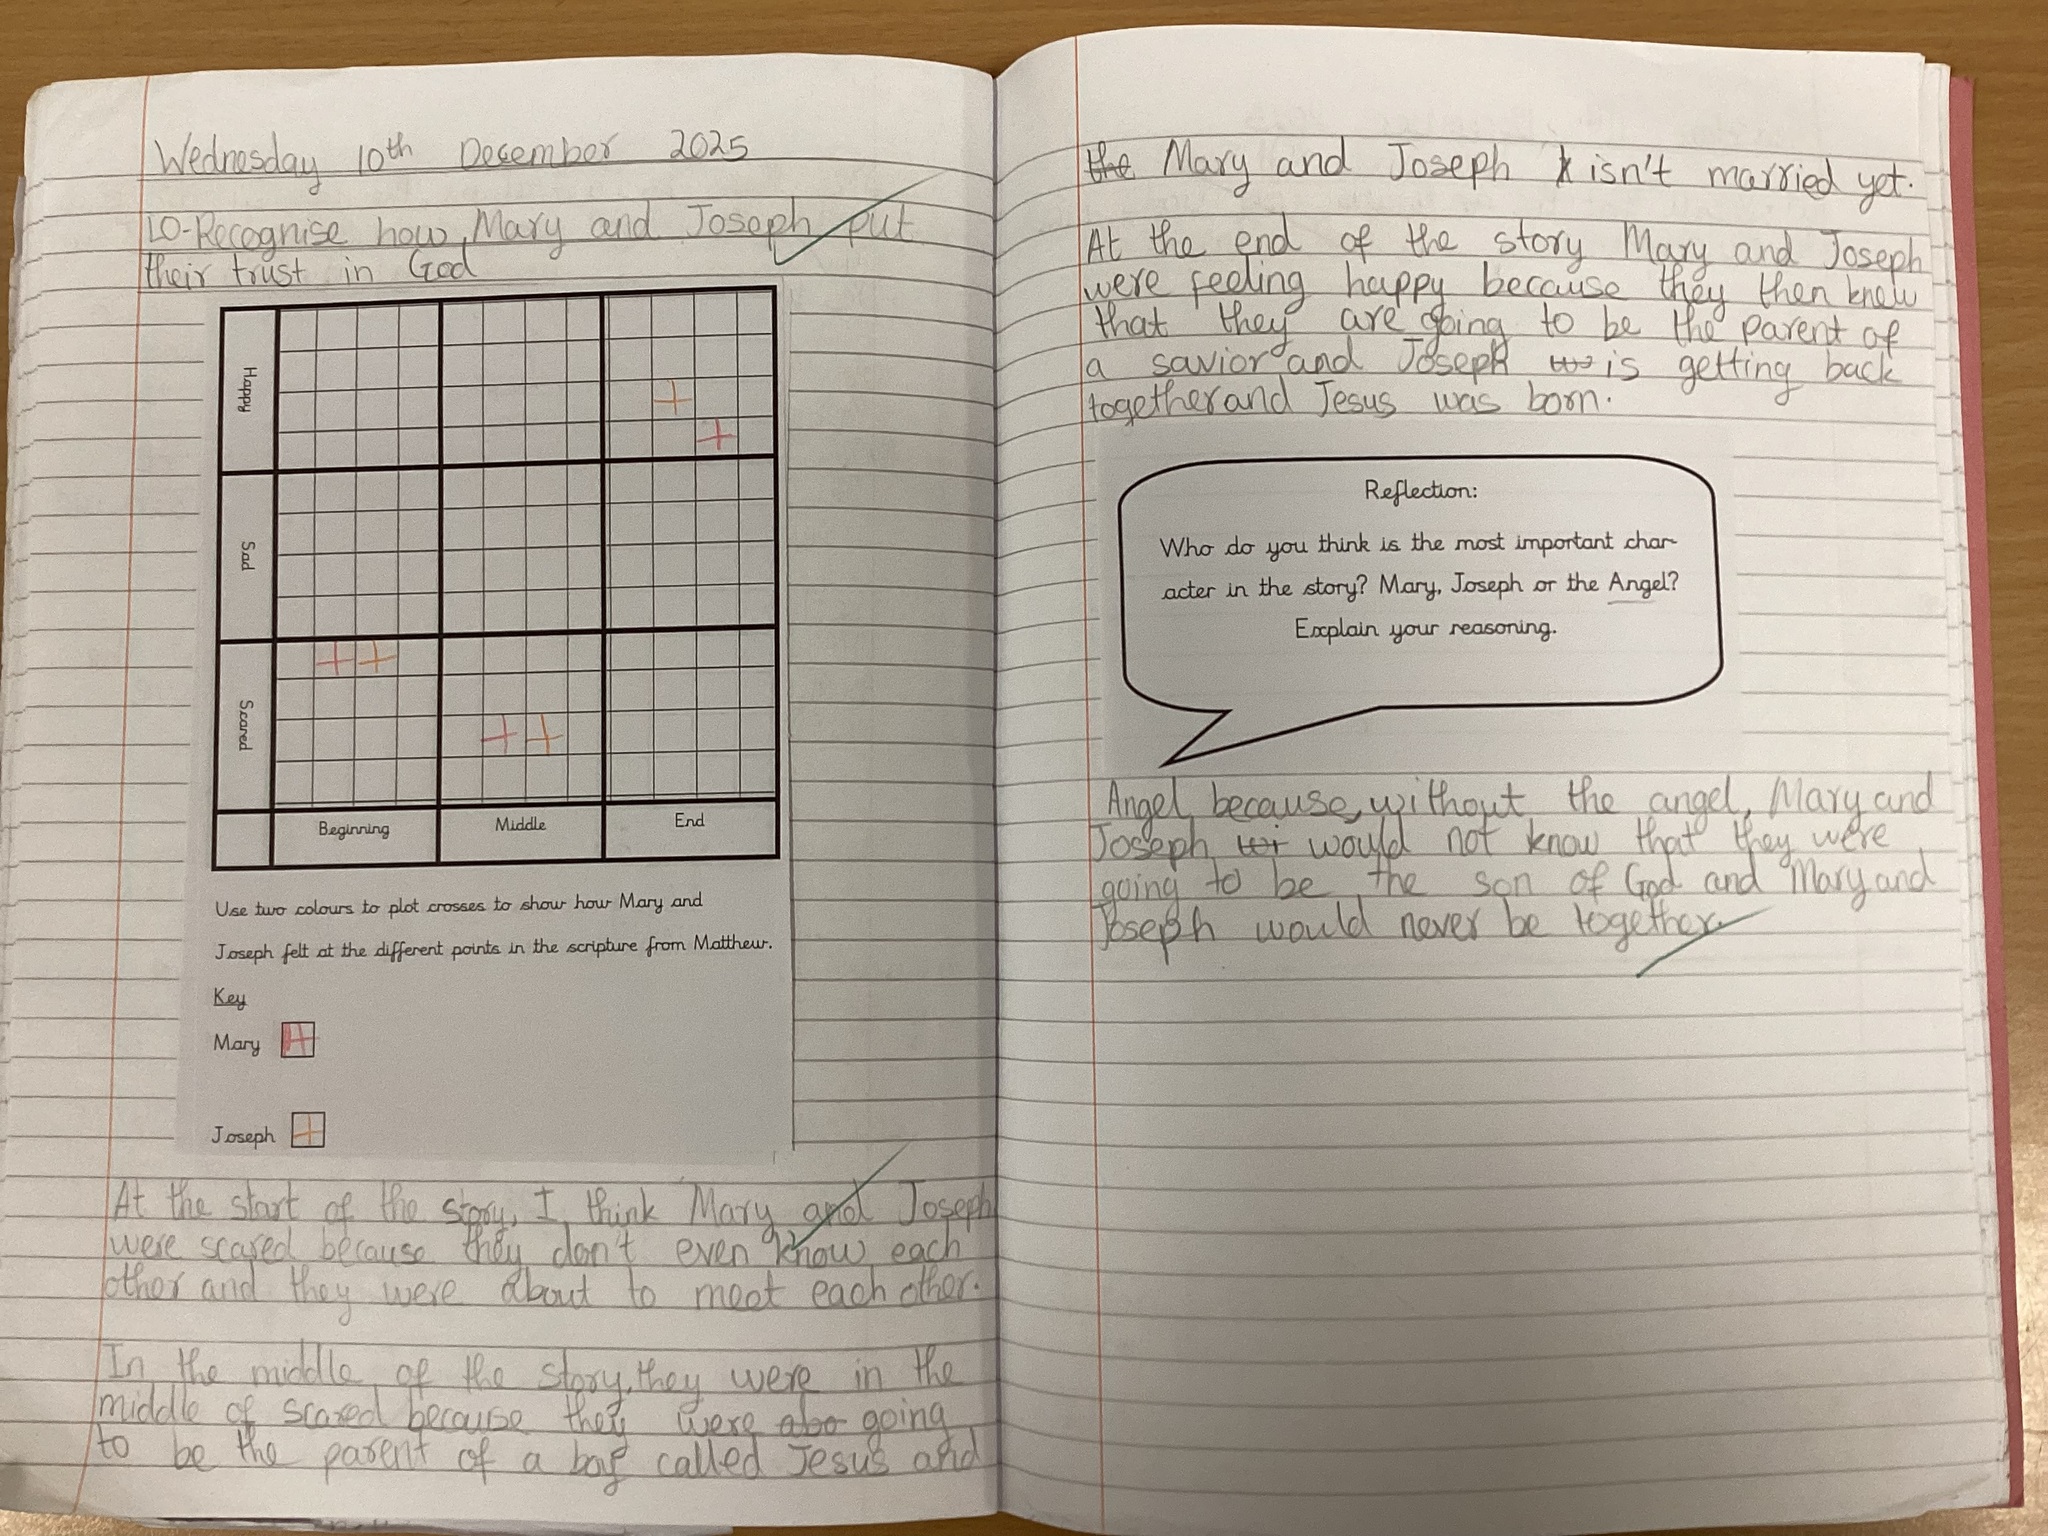 Wednesday 10th December 2025
LO-Recognise how Mary and Joseph put
their trust in God
Happy
Sad
Scared
Beginning Middle End
Use two colours to plot crosses to show how Mary and
Joseph felt at the different points in the scripture from Matthew.
Key
Mary
Joseph
At the start of the story, I think Mary and Joseph
were scared because they don't even know each
other and they were about to meet each other.
In the middle of the story, they were in the
middle of scared because they were abo going
to be the parent of a boy called Jesus and
the Mary and Joseph isn't married yet.
At the end of the story Mary and Joseph
were feeling happy because they then knew
that they are going to be the parent of
a savior and Joseph is getting back
together and Jesus was born.
Reflection:
Who do you think is the most important char-
acter in the story? Mary, Joseph or the Angel?
Explain your reasoning.
Angel because, without the angel, Mary and
Joseph wi would not know that they were
going to be the son of God and Mary and
Joseph would never be together.